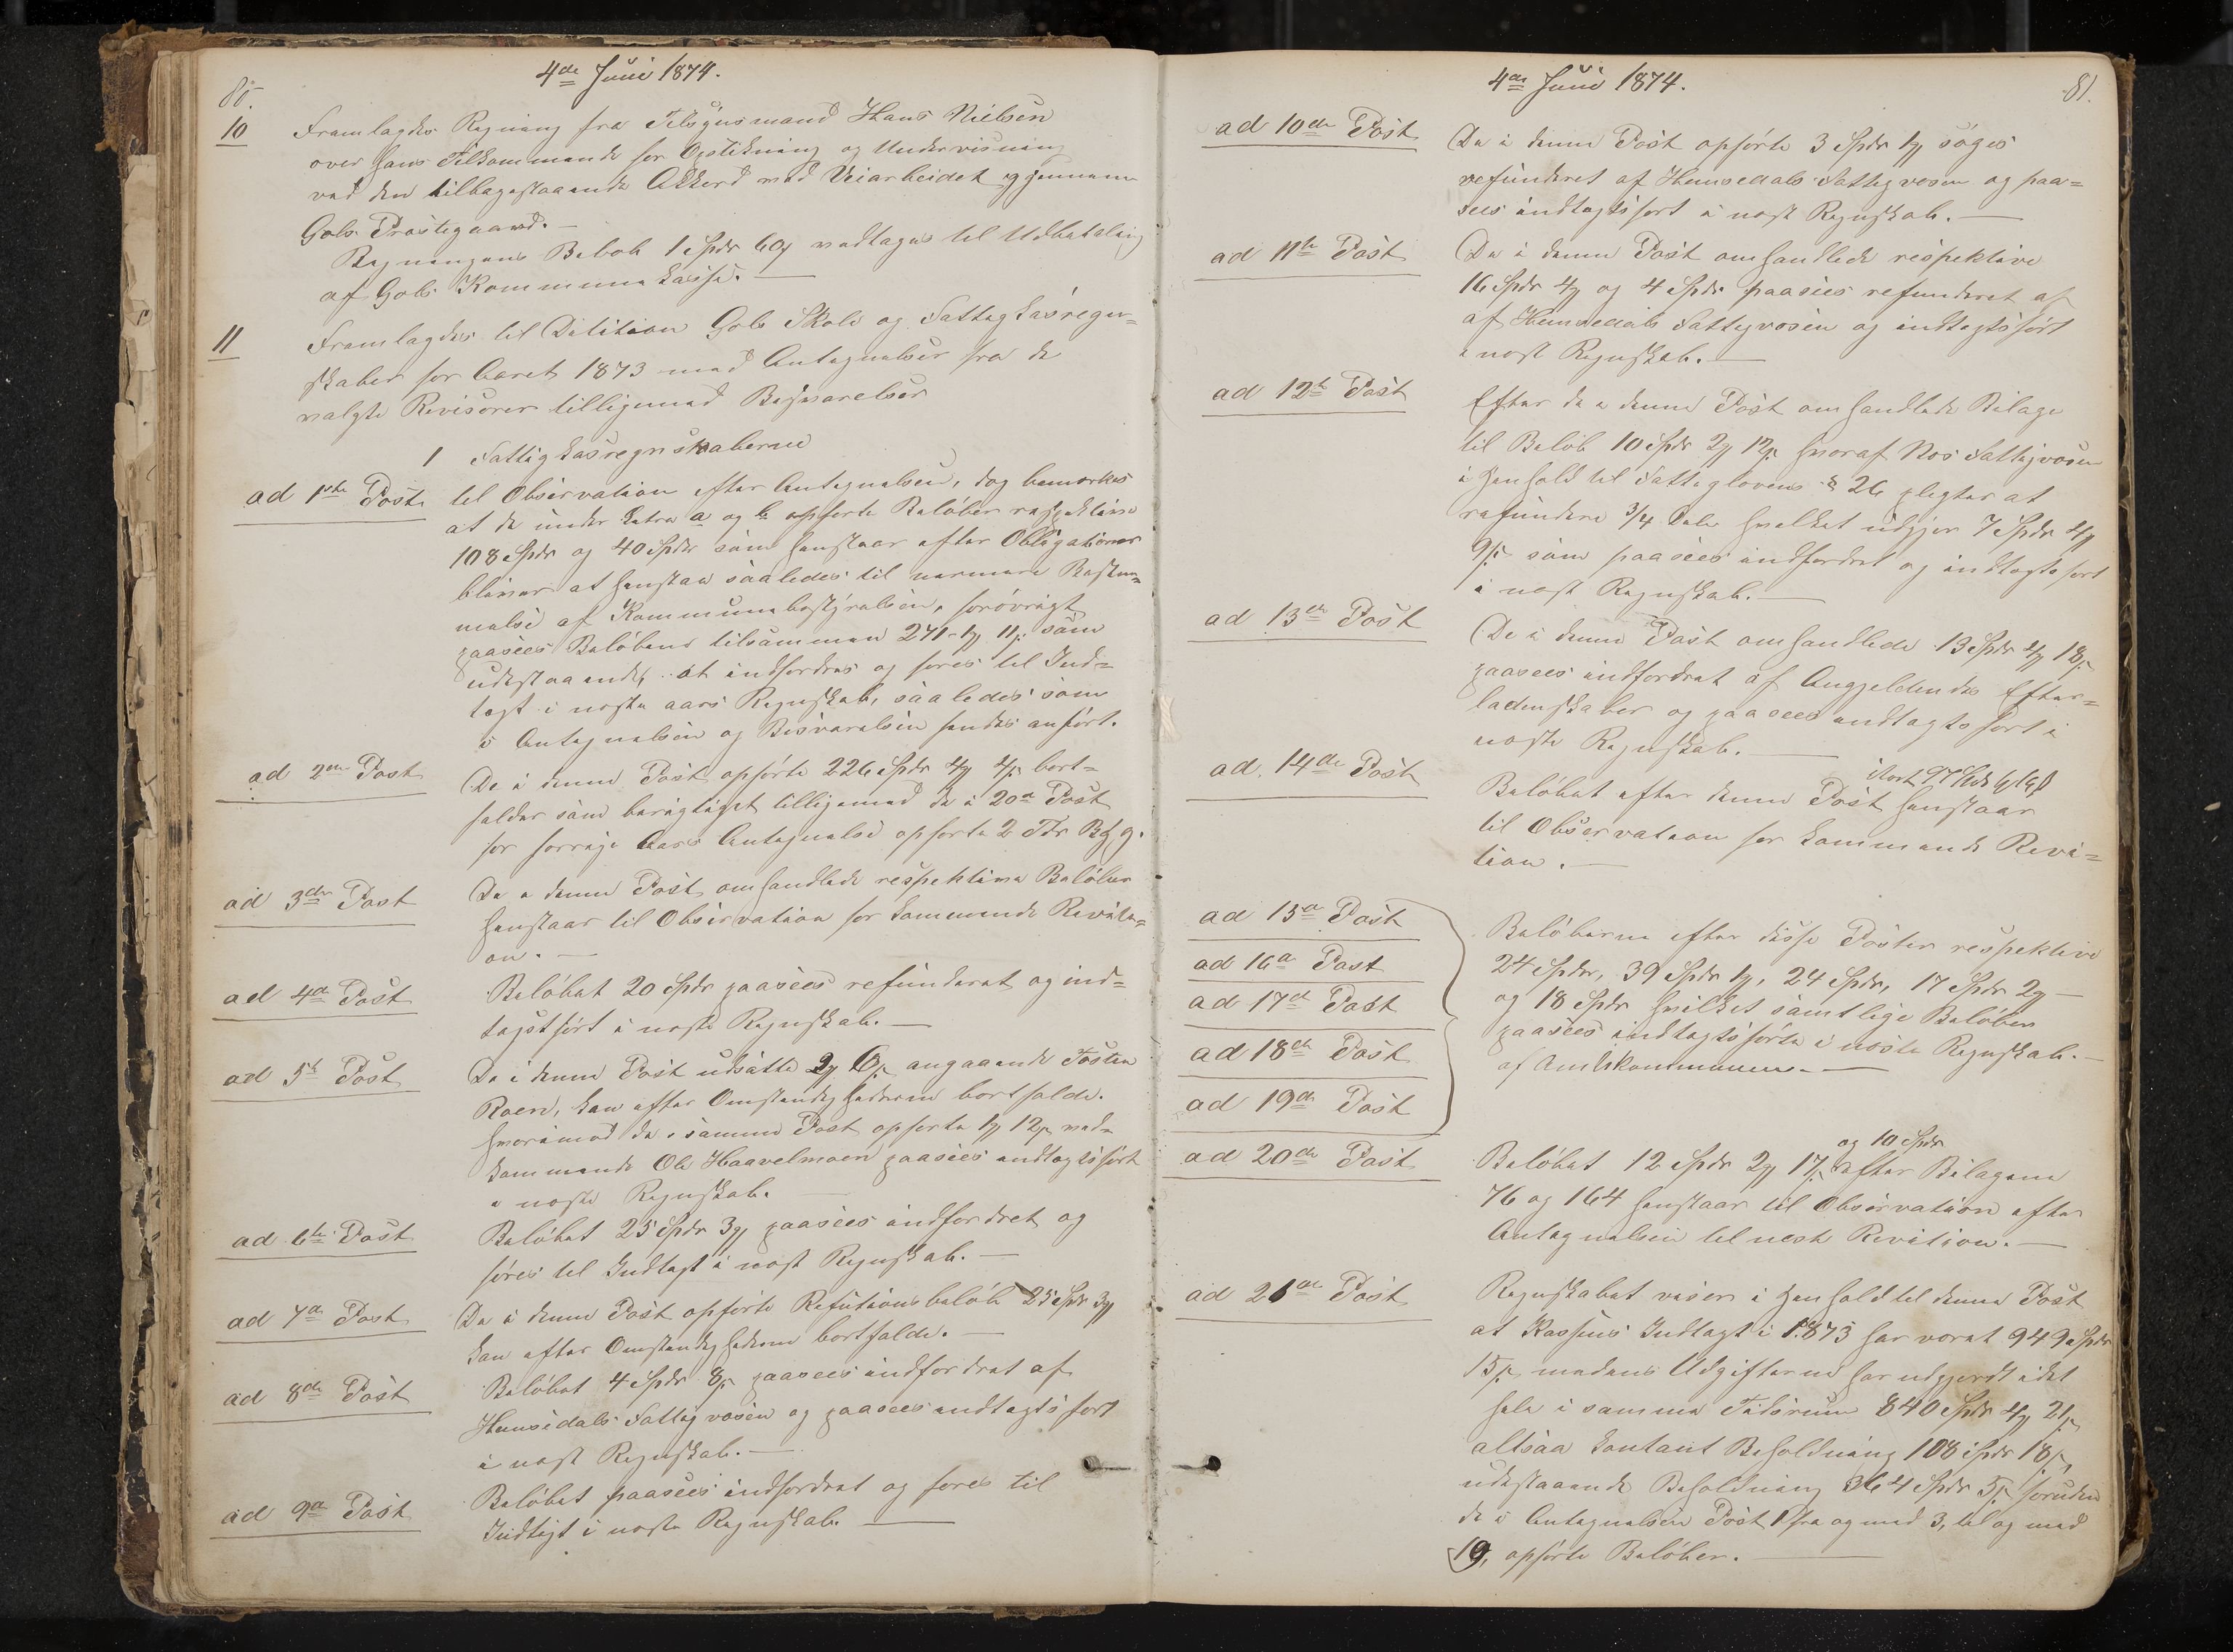 80.
4de Juni 1874.
10 Fremlagdes Regning fra Tilsynsmand Hans Nielsen
over hans Tilkommende for Opstikning og Undervisning
ved den tilbagestaaende Akkord med Veiarbeidet gjennem
Gols Prestegaard. —
Regningens Beløb 1 Spdr 60 vedtages til Udbetaling
af Gols Kommunekasse. —
11 Fremlagdes til Decition Gols Skole og Fattigkasregn-
skaber for Aaret 1873 med Antegnelser fra de
valgte Revisorer tilligemed Besvarelser
1 Fattigkasregnskaberne
ad 1ste Post til Observation efter Antegnelsen, dog bemærkes
at de under Litra a og b opførte Beløber respektive
108 Spdr og 40 Spdr som henstaar efter Obligationer
bliver at henstaa saaledes til nærmere Bestem-
melse af Kommunebestyrelsen, forøvrigt
paasees Beløbene tilsammen 271-1 11 som
udestaaende, at indfordres og føres til Ind-
tægt i næste aars Regnskab, saaledes som
i Antegnelsen og Besvarelsen findes anført.
ad 2den Post De i denne Post opførte 226 Spdr 4 4 bort-
falder som berigtiget tilligemed de i 20de Post
for forrige Aars Antegnelse opførte 2 Tdr Byg.
ad 3die Post De i denne Post omhandlede respektive Beløber
henstaar til Observation for kommende Reviti-
on. —
ad 4de Post Beløbet 20 Spdr paasees refunderet og ind-
tægtført i næste Regnskab. —
ad 5te Post De i denne Post udsatte 2 6 angaaende Tosten
Roen, kan efter Omstændighederne bortfalde.
hvorimod de i samme Post opførte 1 12 ved-
kommende Ole Haavelmoen paasees indtægtsført
i næste Regnskab.
ad 6te Post Beløbet 25 Spdr 3 paasees indfordret og
føres til Indtægt i næst Regnskab. —
ad 7de Post De i denne Post opførte Refutionsbeløb 25 Spdr 3
kan efter Omstændighederne bortfalde. —
ad 8de Post Beløbet 4 Spdr 8 paasees indfordret af
Hemsedals Fattigvæsen og paasees indtægtsført
i næst Regnskab. —
ad 9de Post Beløbet paasees indfordret og føres til
Indtægt i næste Regnskab. —
81.
4de Juni 1874.
ad 10de Post De i denne Post opførte 3 Spdr 1 søges
refunderet af Hemsedals Fattigvæsen og paa-
sees indtægtsført i næst Regnskab. —
ad 11te Post De i denne Post omhandlede respektive
16 Spdr 4 og 4 Spdr paasees refunderet af
af Hemsedals Fattigvæsen og indtægtsført
i næst Regnskab. —
ad 12te Post Efter de i denne Post omhandlede Bilage
til Beløb 10 Spdr 2 12 hvoraf Næs Fattigvæsen
i Henhold til Fattiglovens § 26 pligter at
refundere 3/4 Dele hvilket udgjør 7 Spdr 4
9 som paasees indfordret og indtægtsført
i næst Regnskab. —
ad 13de Post De i denne Post omhandlede 13 Spdr 4 18
paasees indfordret af Angjeldendes Efter-
ladenskaber og paasees indtægtsført i
næste Regnskab. —
ad 14de Post Beløbet efter denne Post henstaar
til Observation for kommende Revi-
tion. —
ad 15de Post
ad 16de Post
ad 17de Post
ad 18de Post
ad 19de Post
Beløberne efter disse Poster respektive
24 Spdr, 39 Spdr 1, 24 Spdr, 17 Spdr 2 —
og 18 Spdr hvilket samtlige Beløber
paasees indtægtsførte i næste Regnskab. —
af Amtskommunen. —
ad 20de Post Beløbet 12 Spdr 2 17 og 10 Spdr efter Bilagene
76 og 164 henstaar til Observation efter
Antegnelsen til næst Revition. —
ad 21de Post Regnskabet viser i Henhold til denne Post
at Kassens Indtægt i 1873 har været 949 Spdr
15 medens Udgifterne har udgjordt i det
hele i samme Tidsrum 840 Spdr 4 21
altsaa kontant Beholdning 108 Spdr 18,
udestaaende Beholdning 364 Spdr 5 foruden
de i Antegnelsen Post 1 fra og med 3, til og med
19, opførte Beløber. —